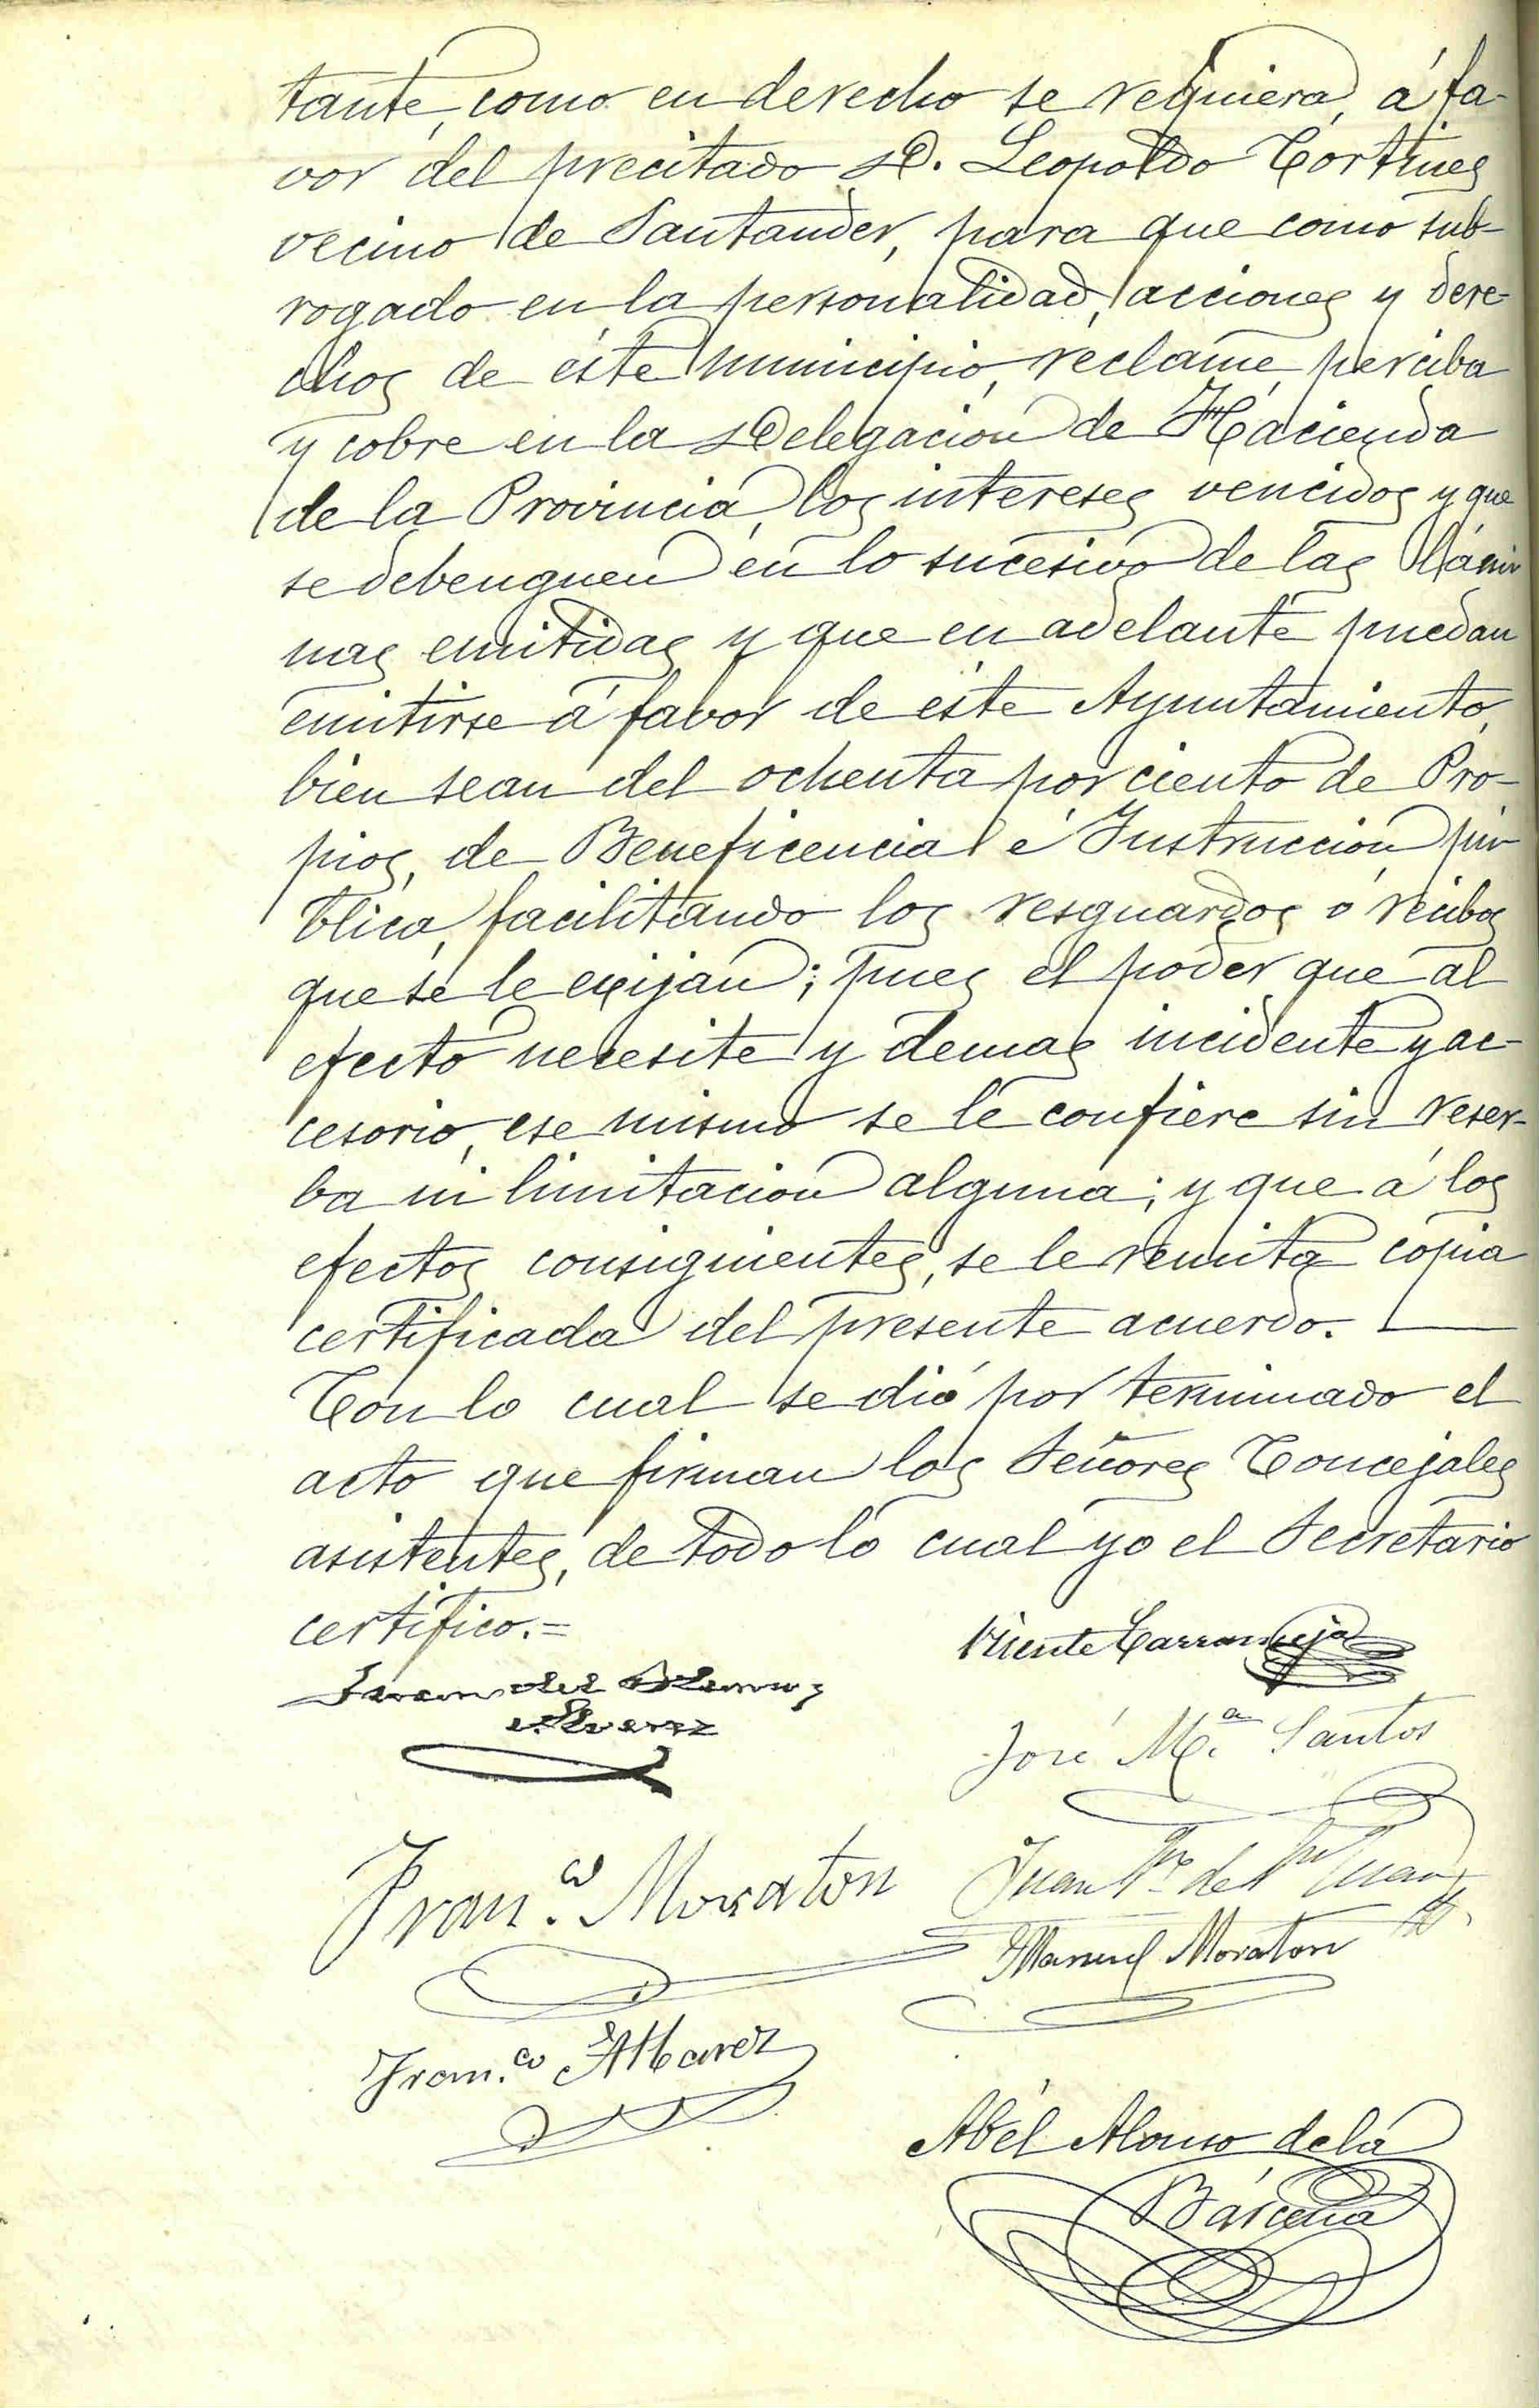 tante, como en derecho se requiera, á fa-
vor del precitado D. Leopoldo Cortines
vecino de Santander, para que como sub-
rogado en la personalidad, acciones y dere-
chos de éste municipio, reclame, perciba
y cobre en la Delegacion de Hacienda
de la Provincia, los intereses vencidos y que
se debenguen en lo sucesivo de las lámi
nas emitidas y que en adelante puedan
emitirse á favor de éste Ayuntamiento,
bien sean del ochenta por ciento de Pro-
pios, de Beneficencia é Instruccion pú
blica, facilitando los resguardos ó recibos
que se le exijan; pues el poder que al
efecto necesite y demas incidente y ac-
cesorio, ese mismo se le confiere sin reser-
ba ni limitacion alguna; y que á los
efectos consiguientes, se le remita copia
certificada del presente acuerdo.
Con lo cual se dió por terminado el
acto que firman los Señores Concejales
asistentes, de todo lo cual yo el Secretario
certifico.=
Vicente Carranceja
Juan del
Alvarez
José M.ª Santos
Fran.co Moraton
Juan de
Manuel Moraton
Fran.co Alvarez
Abél Alonso de la
Bárcena